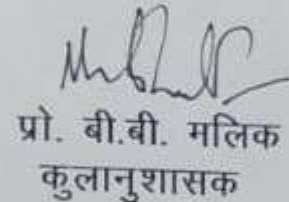 प्रो. बी.बी. मलिक
कुलानुशासक